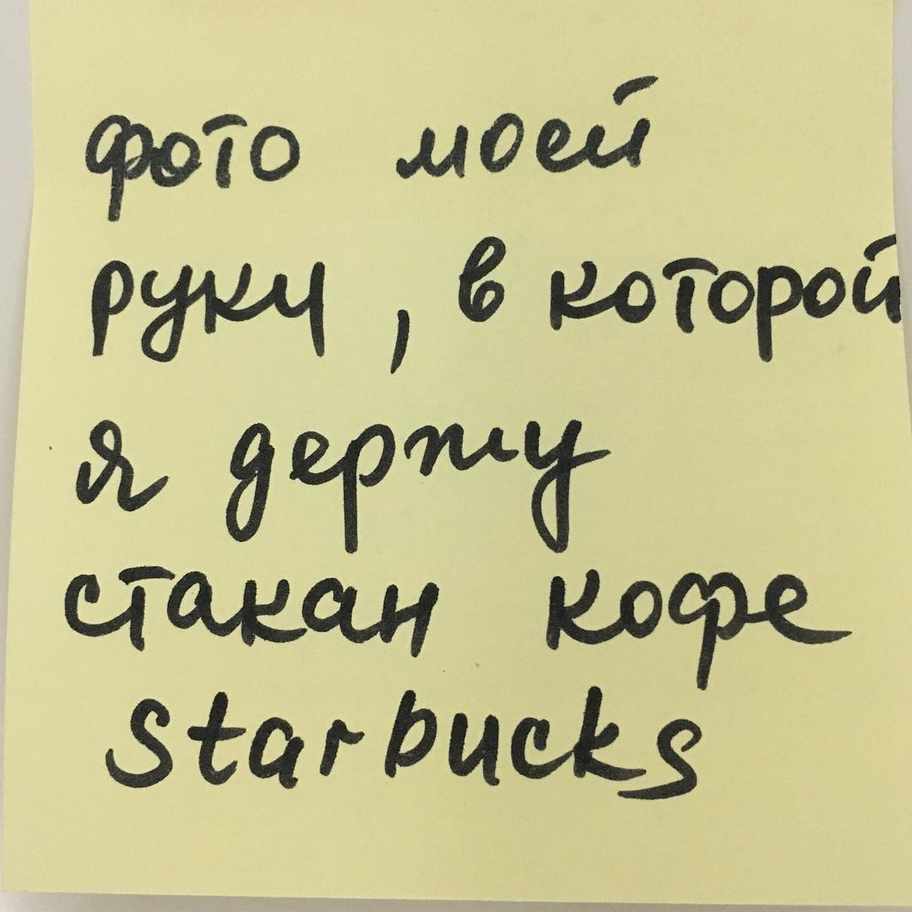 фото моей
руки, в которой
я держу
стакан кофе
Starbucks